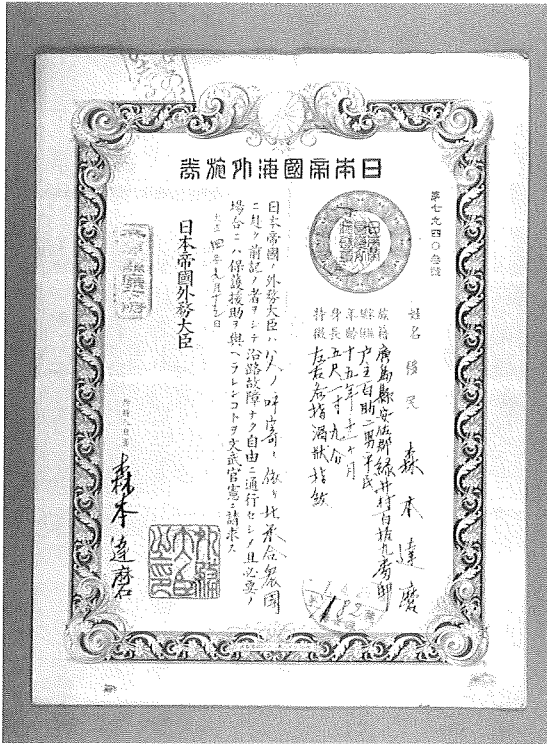 日本帝國海外旅券
第七九四〇参號
姓名
移民
森本達磨
族籍 廣島縣安佐郡緑井村百拾九番邸
戸主百助二男平民
年齢 十五年十一ヶ月
身長 五尺一寸九分
特徴 左右各指渦狀指紋
日本帝國ノ外務大臣ハ父ノ呼寄ニ依リ北米合衆國
ニ赴ク前記ノ者ヲシテ沿路故障ナク自由ニ通行セシメ且必要ノ
場合ニハ保護援助ヲ與ヘラレンコトヲ文武官憲ニ請求ス
大正四年
日本帝國外務大臣
外務大臣之印
森本達磨
182